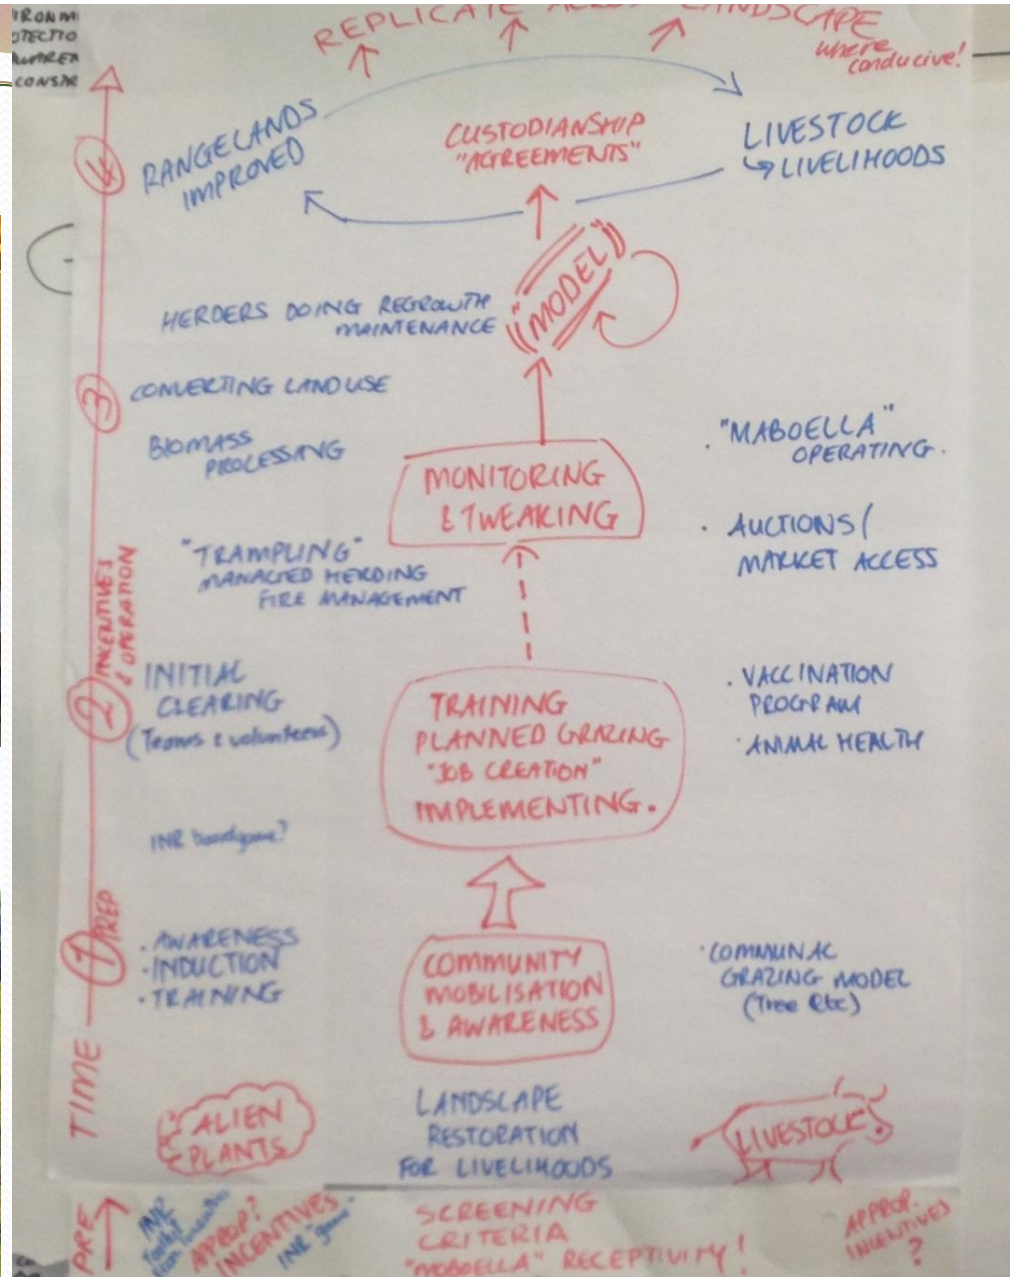 REPLICATE
LANDSCAPE
where
conducive!
4
RANGELANDS
IMPROVED
CUSTODIANSHIP
"AGREEMENTS"
LIVESTOCK
↳ LIVELIHOODS
((MODEL))
HERDERS DOING REGROWTH
MAINTENANCE
3
CONVERTING LAND USE
BIOMASS
PROCESSING
MONITORING
& TWEAKING
· "MABOELLA"
OPERATING.
· AUCTIONS/
MARKET ACCESS
"TRAMPLING"
MANAGED HERDING
FIRE MANAGEMENT
2
INCENTIVES
& OPERATION
INITIAL
CLEARING
(Teams & volunteers)
TRAINING
PLANNED GRAZING
"JOB CREATION"
IMPLEMENTING.
· VACCINATION
PROGRAM
· ANIMAL HEALTH
INR boardgame?
1
PREP
· AWARENESS
· INDUCTION
· TRAINING
COMMUNITY
MOBILISATION
& AWARENESS
· COMMUNAL
GRAZING MODEL
(Tree etc)
TIME
ALIEN
PLANTS
LANDSCAPE
RESTORATION
FOR LIVELIHOODS
LIVESTOCK
PRE
INR
Toolkit
APPROP?
INCENTIVES
INR "game"
SCREENING
CRITERIA
"MOBOELLA" RECEPTIVITY!
APPROP.
INCENTIVES
?